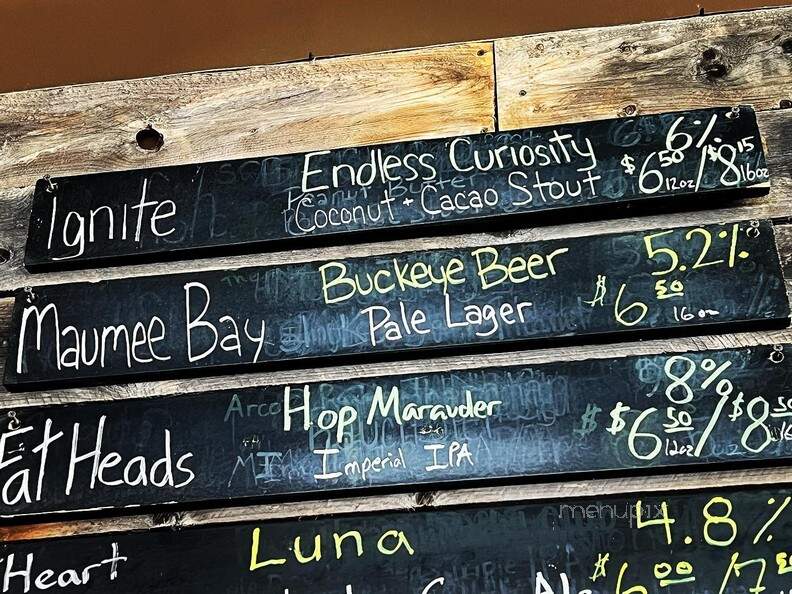 Ignite
Endless Curiosity
Coconut + Cacao Stout
6%
$6.50 12oz / $8.15 16oz
Maumee Bay
Buckeye Beer
Pale Lager
5.2%
$6.50
16 oz
Fat Heads
Hop Marauder
Imperial IPA
8%
$6.50 12oz / $8.50 16
Heart
Luna
4.8%
$6.00 / 7.5
menupix